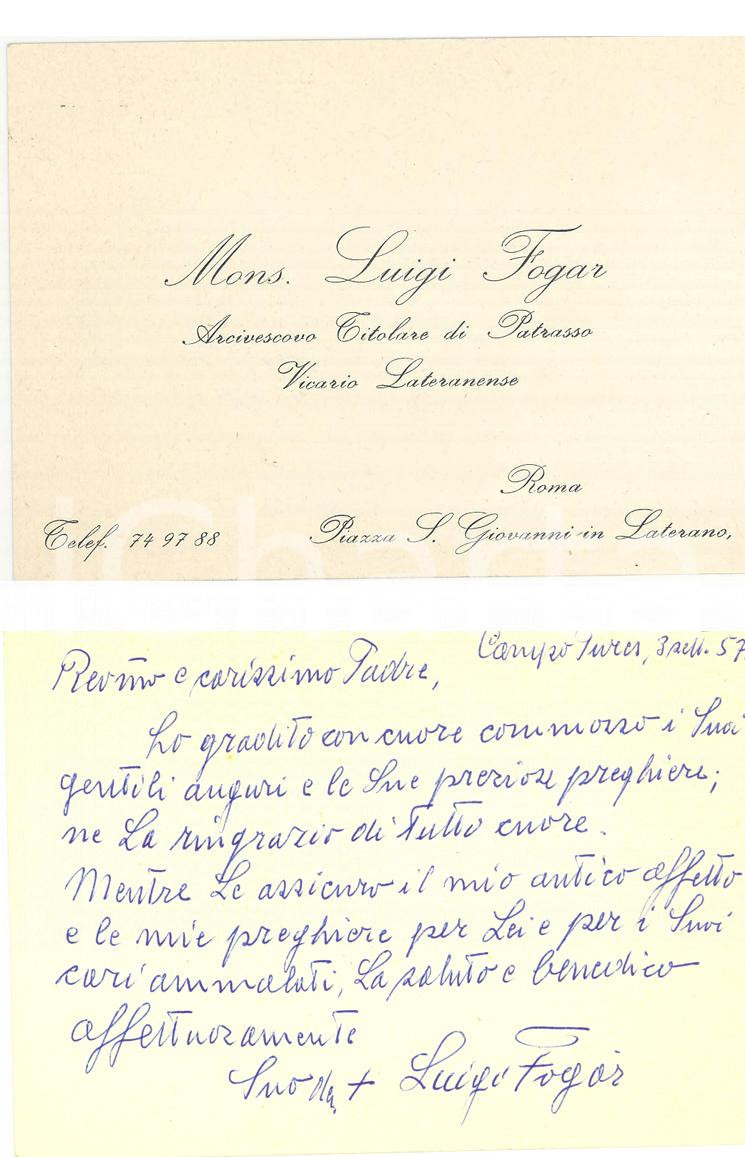 Mons. Luigi Fogar
Arcivescovo Titolare di Patrasso
Vicario Lateranense
Roma
Telef. 74 97 88 Piazza S. Giovanni in Laterano,
Campo Tures, 3 sett. 57
Revmo e carissimo Padre,
ho gradito con cuore commosso i Suoi
gentili auguri e le Sue preziose preghiere;
ne La ringrazio di tutto cuore.
Mentre Le assicuro il mio antico affetto
e le mie preghiere per Lei e per i Suoi
cari ammalati, La saluto e benedico
affettuosamente
Suo + Luigi Fogar